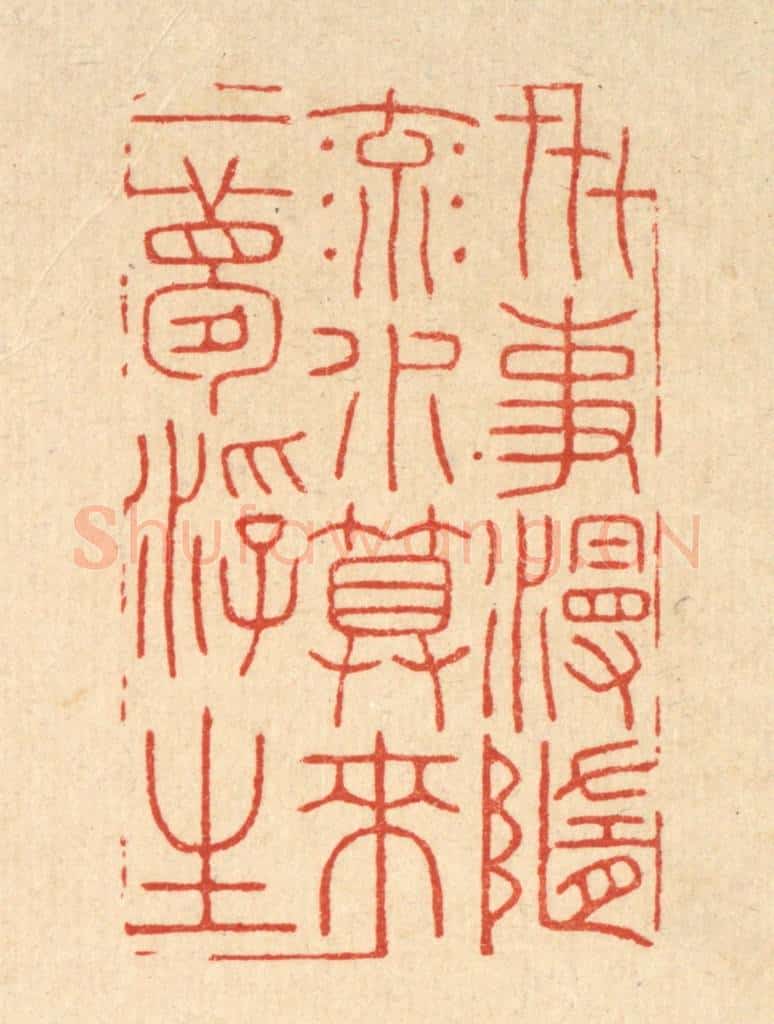 世事漫隨
流水算來
一夢浮生
Shufawang.CN